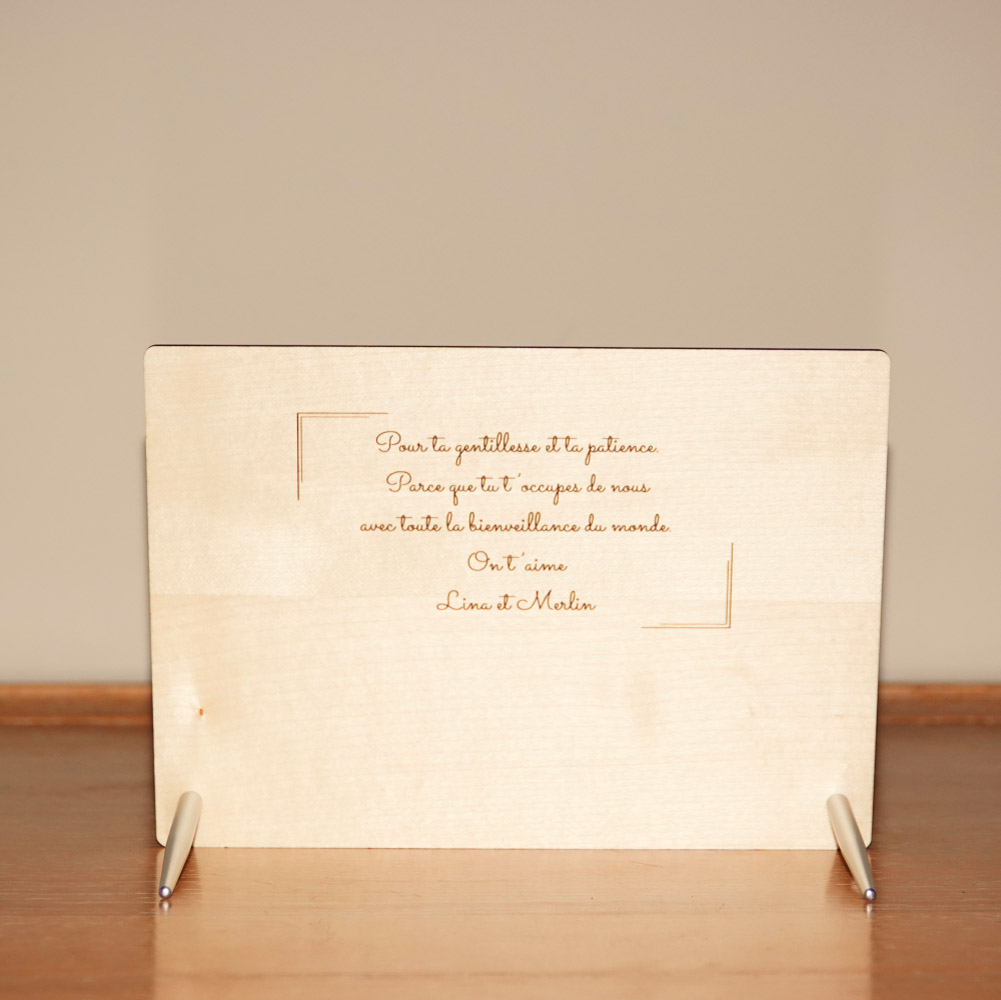 Pour ta gentillesse et ta patience.
Parce que tu t'occupes de nous
avec toute la bienveillance du monde.
On t'aime
Lina et Merlin